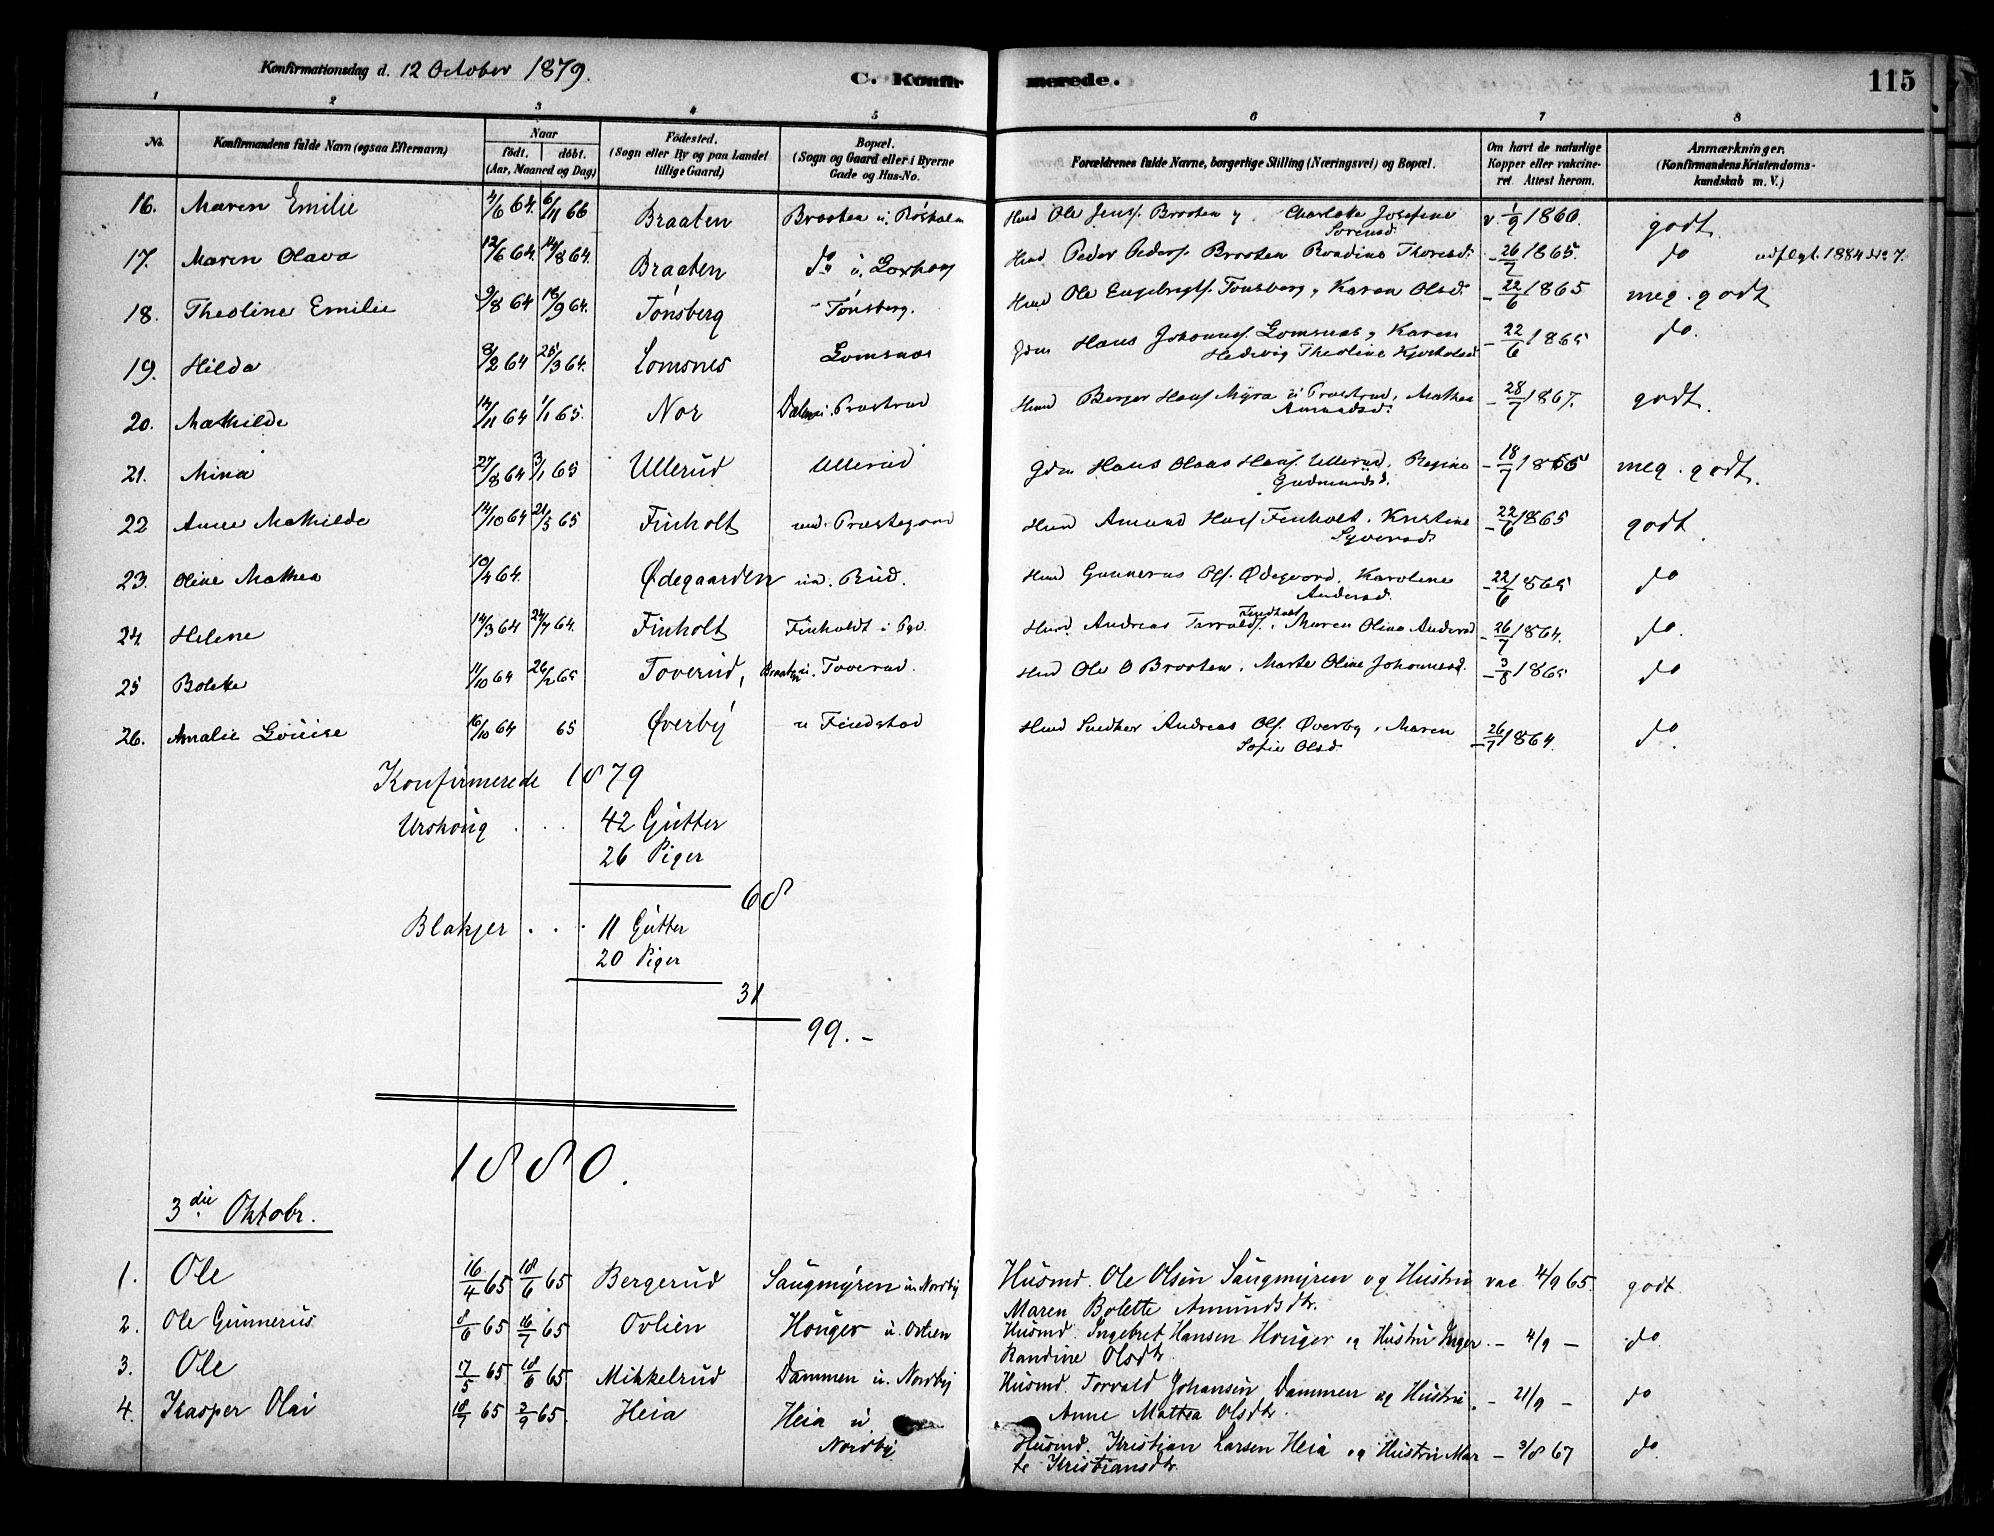 Konfirmationsdag d. 12 October 1879. C. Konfirmerede. 115
1 2 3 4 5 6 7 8
No. Konfirmandens fulde Navn (ogsaa Efternavn) Naar født. døbt. (Aar, Maaned og Dag) Fødested. (Sogn eller By og paa Landet tillige Gaard) Bopæl. (Sogn og Gaard eller i Byerne Gade og Hus-No. Forældrenes fulde Navne, borgerlige Stilling (Næringsvei) og Bopæl. Om havt de naturlige Kopper eller vakcineret. Attest herom. Anmærkninger. (Konfirmandens Kristendomskundskab m. V.)
16. Maren Emilie 4/6 64. 6/11 66 Braaten Braaten u. Ole Jens. Braaten Charlotte Josefine Sørensd v. 1/9 1860. godt.
17. Maren Olava 12/6 64. 14/8 64. Braaten do u. Peder Peders. Braaten Thoresd. - 26/7 1865. do udflyt. 1884 No 7.
18. Theoline Emilie 9/8 64 18/9 64. Tønsberg - Tønsberg. Ole Engebrigts. Tønsberg, Karen Olsd. - 22/6 1865 meg. godt
19. Hilda 8/2 64 25/3 64. Lomsnes Lomsnæs Hans Johanness. Lomsnæs, Karen Hedevig Theoline - 22/6 1865 do.
20. Mathilde 14/11 64 1/1 65. Nor Hans. Myra Mathea Amundsd. - 28/7 1867. godt.
21. Mina 27/8 64 3/1 65 Ullerud Ullerud Gdm Hans Olaus Hans. Ullerud. Regine Gudmundsd. - 18/7 1865 meg. godt.
22 Anne Mathilde 14/10 64 21/5 65 Finholt und. Præstegaard Amund Hans. Finholt. Kristine Syversd. - 22/6 1865 godt.
23. Oline Mathea 10/4 64. Ødegaarden und. Rud. Gunnerus Ols. Ødegaard. Karoline Andersd. - 22/6 1865 do
24. Helene 14/3 64 24/7 64. Finholt Finholdt Andreas Torvalds. Finholdt. Maren Olina Andersd - 26/7 1864. do.
25 Bolette 11/10 64 26/2 65 Toverud, Braaten u. Toverud. Ole O Braaten. Marte Oline Johannesd. - 3/8 1865 do
26. Amalie Louise 16/10 64 65 Øverby u Findstad Snedker Andreas Ols. Øverby, Maren Sofie Olsd. - 26/7 1864. do.
Konfirmerede 1879
Urskoug . . . 42 Gutter
26 Piger
68
Blakjer . . . 11 Gutter
20 Piger
31
99. -
1880.
3die Oktobr.
1. Ole 16/4 65 18/6 65 Bergerud Saugmyren u Nordby Husmd. Ole Olsen Saugmyren og Hustru vac 4/9 65. godt.
Maren Bolette Amundsdtr.
2. Ole Gunnerus 8/6 65 16/7 65 Ovlien Honger u. Ovlien Husmd. Ingebret Hansen Honger og Hustru Inger - 4/9 - do.
Randine Olsdtr
3. Ole 17/5 65 18/6 65 Mikkelrud Dammen u. Nordby Husmd. Torvald Johansen Dammen og Hustru - 21/9 - do
Anne Mathea Olsdtr.
4. Kasper Olai 18/7 65 3/9 65. Heia Heia u. Nordby Husmd. Kristian Larsen Heia og Hustru Mar - 3/8 67 do.
te Kristiansdtr.